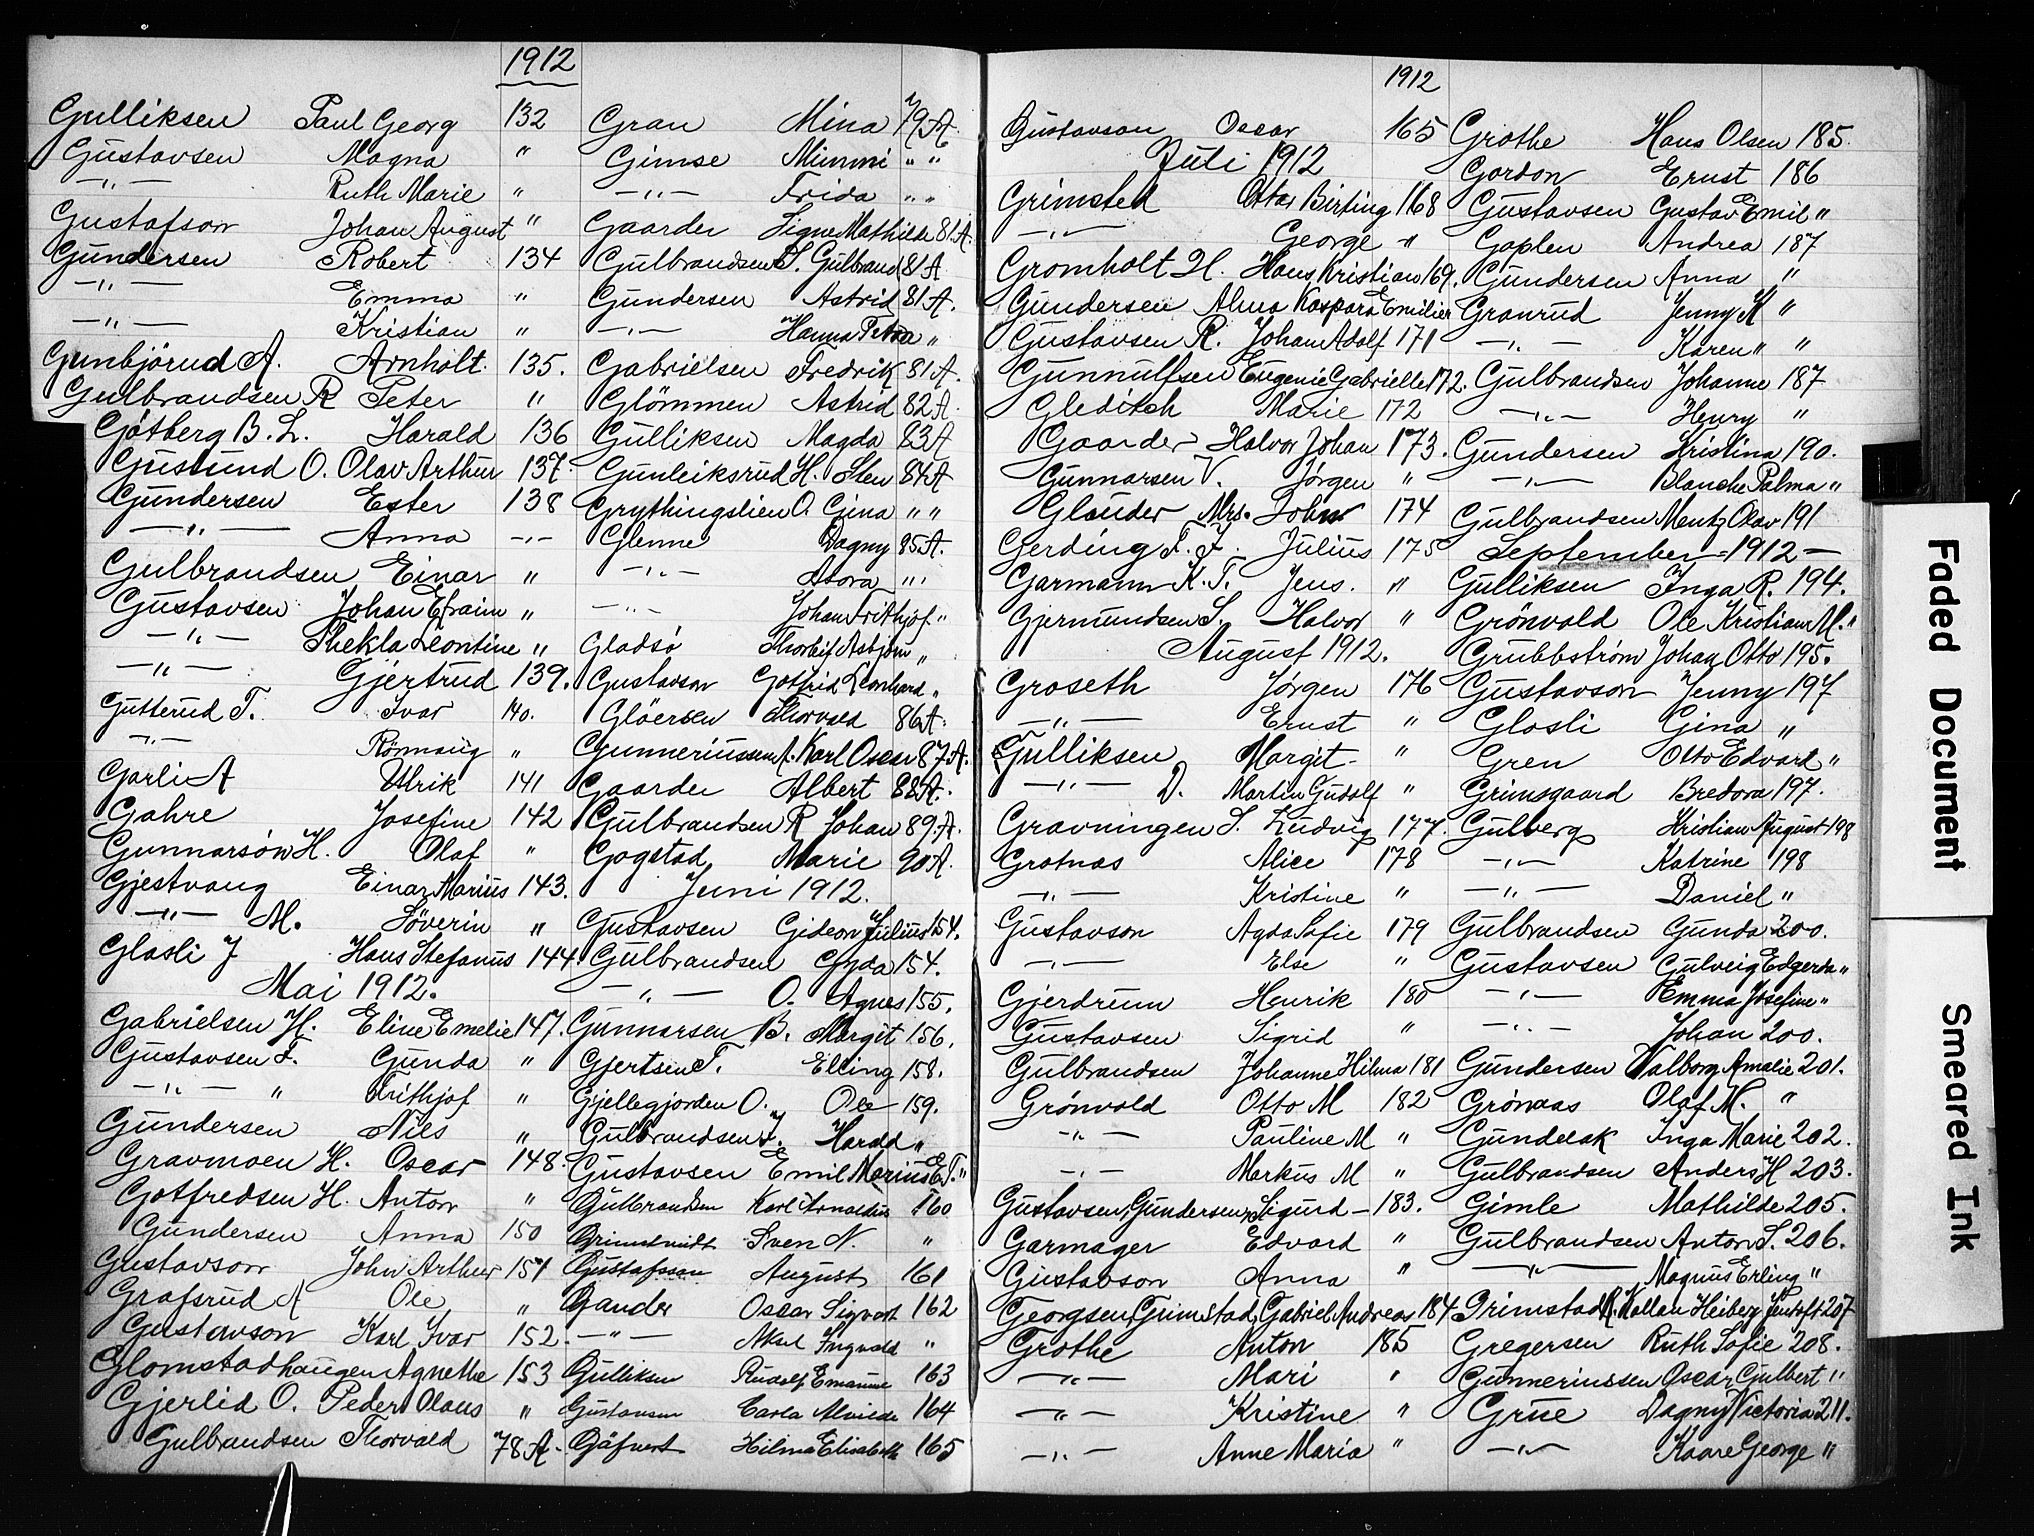 1912
Gulliksen Paul Georg 132
Gustavsen Magna "
—"— Ruth Marie "
Gustafson Johan August "
Gundersen Robert 134
—"— Emma "
—"— Kristian "
Gunbjörud A. Arnholt. 135.
Gulbrandsen R Peter "
Götberg B. L. Harald 136
Gusund O. Olav Arthur 137.
Gundersen Ester 138
—"— Anna -"-
Gulbrandsen Einar "
Gustavsen Johan Efraim "
—"— Thekla Leontine "
—"— Gjertrud 139.
Gutterud T. Ivar 140.
—"— "
Garli A Ulrik 141
Gahre Josefine 142
Gunnarsön H. Olaf "
Gjestvang Einar Marius 143.
—"— M. Söverin "
Glosli J Hans Stefanus 144.
Mai 1912.
Gabrielsen H. Eline Emelie 147.
Gustavsen F. Gunda "
—"— " Frithjof "
Gundersen Niels "
Gravmoen H. Oscar 148.
Gotfredsen H. Anton "
Gundersen Anna 150
Gustavson John Arthur 151
Grafsrud A Ole "
Gustavson Karl Ivar 152.
Glomstadhaugen Agnethe 153
Gjerlid O. Peder Olaus "
Gulbrandsen Thorvald 78 A.
Gran Mina 79 A.
Gimse Mimmi " "
—"— Frida " "
Gaarder Signe Mathilde 81 A.
Gulbrandsen S. Gulbrand 81 A
Gundersen Astrid 81 A.
—"— Hanna Petra "
Gabrielsen Fredrik 81 A.
Glömmen Astrid 82 A.
Gulliksen Magda 83 A
Gunleiksrud H. Sten 84 A
Grythingslien O. Gina " "
Glenne Dagny 85 A.
—"— Atora " "
—"— Johan Frithjof "
Gladsö Thorleif Asbjørn "
Gustavson Gotfrid Leonhard "
Glöersen Thorvald 86 A.
Gunneriussen A. Karl Oscar 87 A.
Gaarder Albert 88 A.
Gulbrandsen R Johan 89. A.
Gogstad Marie 90 A.
Juni 1912.
Gustavsen Gideon Julius 154.
Gulbrandsen Gyda 154.
—"— O. Agnes 155.
Gunnarsen B. Margit 156.
Gjertsen T. Elling 158.
Gjellegjorden O. Ole 159.
Gulbrandsen Harald "
Gustavsen Emil Marius E. T. "
Gulbrandsen Karl Arnoldus 160
Sven N. "
Gustafsson August 161
Gander Oscar Sigvart 162
—"— Aksel Ingvald "
Gulliksen Rudolf 163
Gustavsen Carla Alvilde 164
Gäfvert Hilma Elisabeth 165
1912
Gustavson Oscar 165
Juli 1912
Grimsted Otto Birting 168
—"— George "
Gromholt H. Hans Kristian 169.
Gundersen Alma Kaspara Emilie
Gustavsen R. Johan Adolf 171
Gunnulfsen Eugenie Gabrielle 172.
Gleditch Marie 172
Gaarder Halvor Johan 173.
Gunnarsen V. Jørgen "
Glauder Mrs. John 174
Gerding F. F. Julius 175
Garmann K. T. Jens. "
Gjermundsen S. Halvor "
August 1912.
Groseth Jørgen 176
—"— Ernst "
Gulliksen Margit "
—"— D. Martin Gudolf "
Gravningen S. Ludvig 177.
Grotnas Alice 178
—"— Kristine "
Gustavson Agda Sofie 179
—"— Else "
Gjerdrum Henrik 180
Gustavsen Sigrid "
Gulbrandsen Johanne Hilma 181
Grönvold Otto M 182
—"— Pauline M "
—"— Markus M "
Gustavsen, Gundersen, Sigurd — 183.
Garmager Edvard "
Gustavson Anna "
Georgsen, Grimstad, Gabriel Andreas 184
Grothe Anton 185
—"— Mari "
—"— Kristine "
—"— Anne Maria "
Grothe Hans Olsen 185.
Gordon Ernst 186
Gustavsen Gustav Emil "
Goplen Andrea 187
Gundersen Anna "
Granrud Jenny K "
—"— Karen " "
Gulbrandsen Johanne 187
—"— Henry "
Gundersen Kristina 190.
—"— Blanche Palma "
Gulbrandsen Mentz Olav 191
September — 1912 —
Gulliksen Inga R. 194.
Grönvold Ole Kristian M. "
Grubbström Johan Otto 195.
Gustavson Jenny 197
Glosli Gina "
Gren Otto Edvard "
Grimsgaard Bredora 197.
Gulberg Kristian August 198
—"— Katrine 198
—"— Daniel "
Gulbrandsen Gunda 200.
Gustavsen Gulveig Edgerda "
—"— Emma Josefine "
—"— Johan 200.
Gundersen Valborg Amalie 201.
Grönaas Olaf M. "
Gundelak Inga Marie 202.
Gulbrandsen Anders H 203.
Gimle Mathilde 205.
Gulbrandsen Anton S. 206.
—"— Magnus Erling "
Grimstad R. Kallan Heiberg Jentoft 207
Gregersen Ruth Sofie 208.
Gunneriussen Oscar Gulbert "
Grue Dagny Victoria 211.
—"— Kaare George "
Faded Document
Smeared Ink